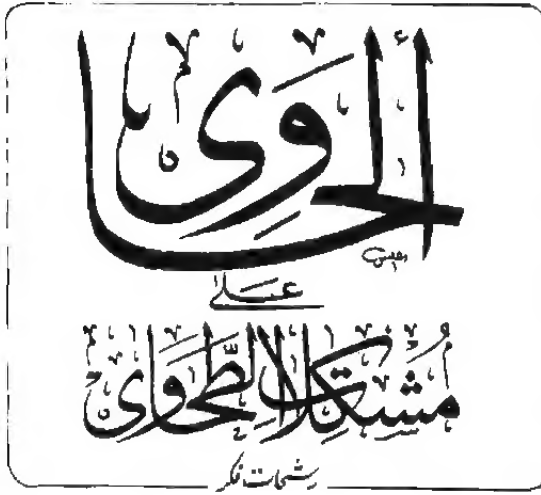 الحاوی
علیٰ
مُشکلات الطّحاوی
رشحات فکر